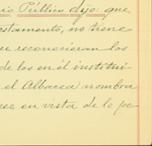 rio Público dijo: que
estamento, no tiene
se reconocieran los
de los en él institui-
el Albacea nombra
ree en vista de lo pe-